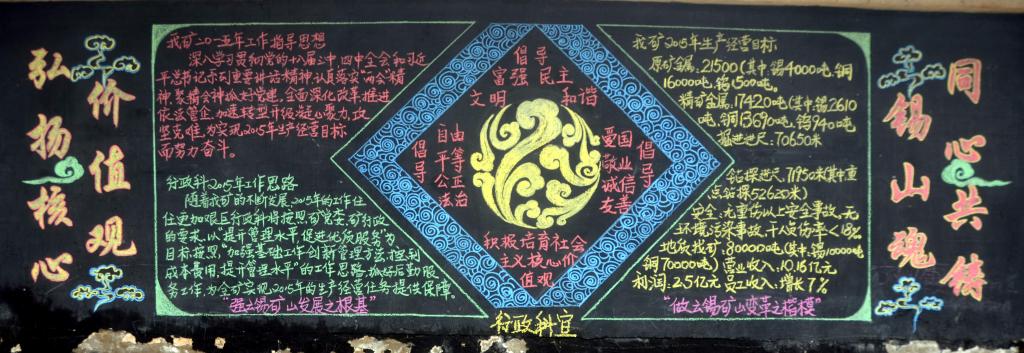 弘扬核心
价值观
我矿二〇一五年工作指导思想
深入学习贯彻党的十八届三中、四中全会和习近
平总书记系列重要讲话精神,认真落实"两会"精
神,聚精会神抓好党建,全面深化改革,推进
依法管企,加速转型升级,凝心聚力,攻
坚克难,为实现2015年生产经营目标
而努力奋斗。
行政科2015年工作思路
随着我矿的不断发展,2015年的工作任
务更加艰巨,行政科将按照矿党委、矿行政
的要求,以"提升管理水平,促进优质服务"为
目标,按照"加强基础工作,创新管理方法,控制
成本费用,提升管理水平"的工作思路,抓好后勤服
务工作,为全矿实现2015年的生产经营任务提供保障。
"强云锡矿山发展之根基"
倡导
富强 民主
文明 和谐
倡导
自由
平等
公正
法治
倡导
爱国
敬业
诚信
友善
积极培育社会
主义核心价
值观
行政科宣
我矿2015年生产经营目标
原矿金属:21500(其中:锡4000吨,铜
16000吨,钨1500吨。
精矿金属:17420吨(其中:锡2610
吨,铜13690吨,钨940吨
掘进进尺:70650米
钻探进尺:71950米(其中重
点钻探52620米)
安全:无重伤以上安全事故,无
环境污染事故,千人负伤率<18%
地质找矿:80000吨(其中:锡10000吨
铜70000吨)营业收入:10.16亿元
利润:2.51亿元 员工收入:增长7%
"做云锡矿山变革之楷模"
同心共铸
锡山魂